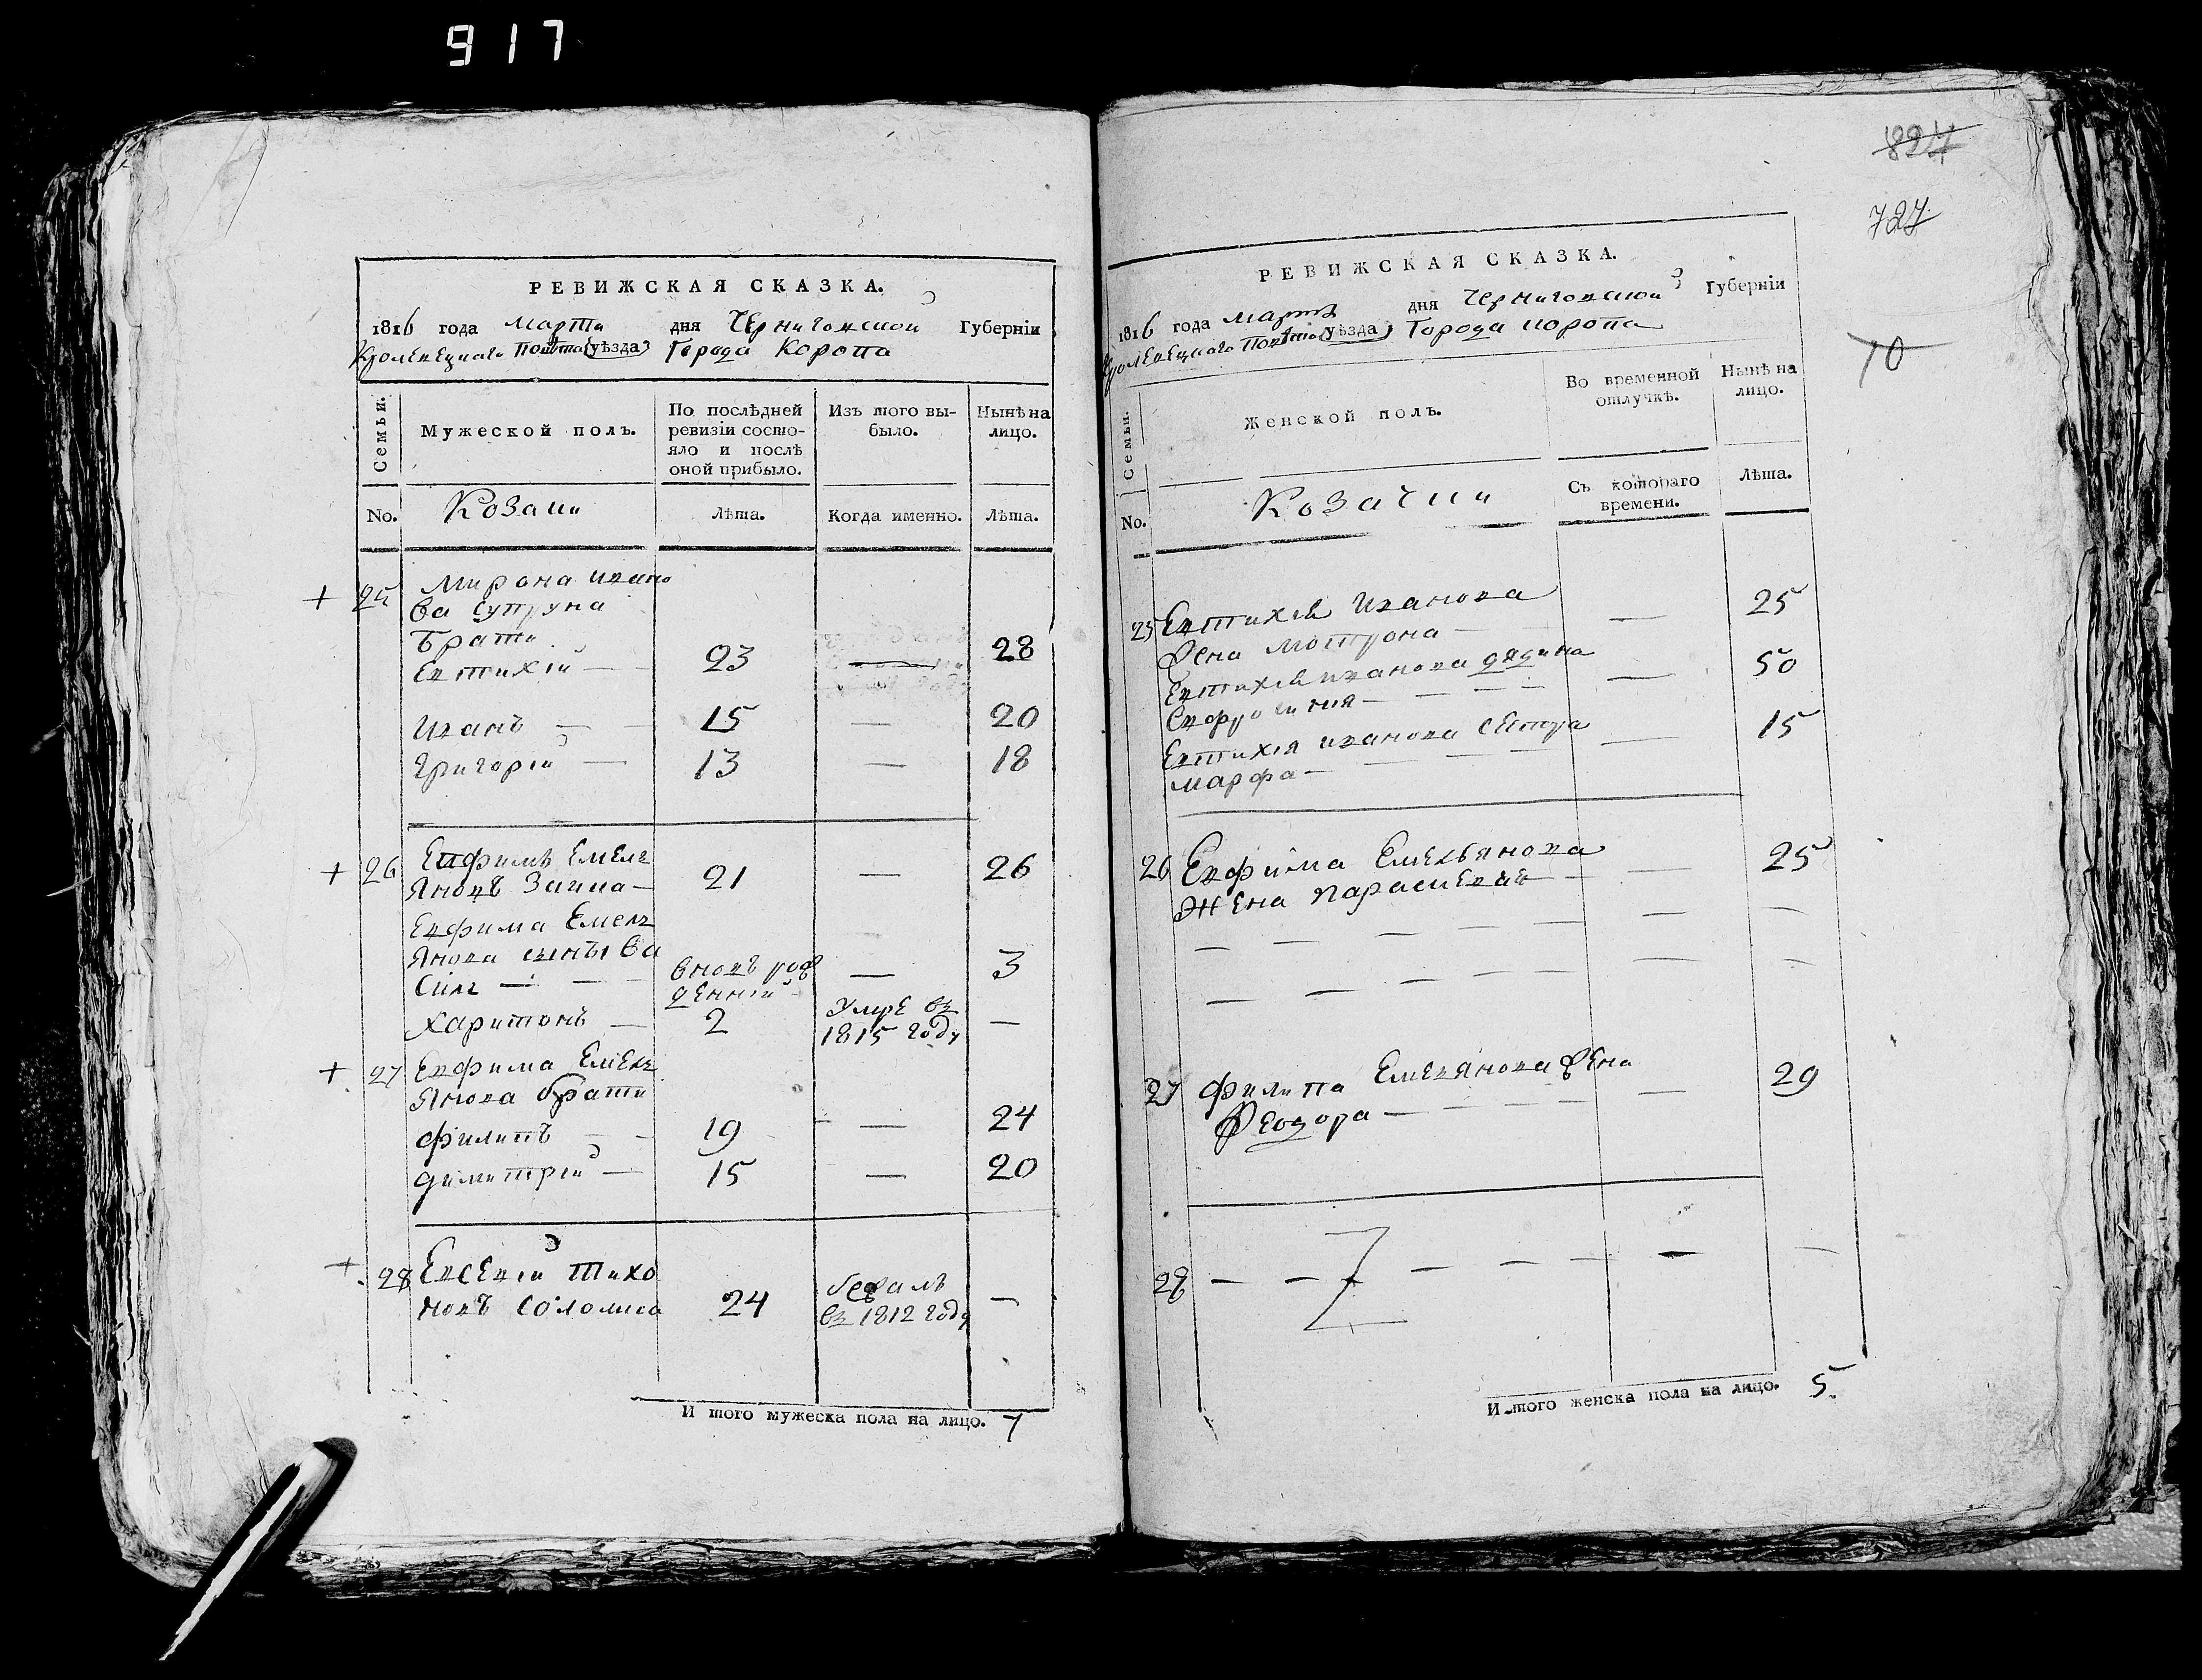 917
РЕВИЖСКАЯ СКАЗКА.
1816 года Марта дня Черниговской Губерніи
Кролевецкаго Повѣта (уѣзда) Города Коропа
Семьи.
Мужеской полъ.
По послѣдней ревизіи состояло и послѣ оной прибыло.
Изъ того выбыло.
Нынѣ на лицо.
No.
Козаки
Лѣта.
Когда именно.
Лѣта.
+ 25 Мирона Ивано
ва Супруна
Брати
Евтихій — 23 — 28
Иванъ — 15 — 20
Григорій — 13 — 18
+ 26 Евфимъ Емелъ
яновъ Заика — 21 — 26
Евфима Емелъ
янова сыны Ва
силъ — вновъ рож — 3
денній
Харитонъ — 2 Умре въ —
1815 году
+ 27 Евфима Емелъ
янова брати
Филипъ — 19 — 24
Димитрій — 15 — 20
+ 28 Евсевій Тихо
новъ Соломка 24 бежалъ —
въ 1812 году
И того мужеска пола на лицо. 7
827
727
70
РЕВИЖСКАЯ СКАЗКА.
1816 года Марта дня Черниговской Губерніи
Кролевецкаго Повѣта (уѣзда) Города Коропа
Семьи.
Женской полъ.
Во временной отлучкѣ.
Нынѣ на лицо.
No.
Козачки
Съ котораго времени.
Лѣта.
25 Евтихія Иванова — 25
жена Мотрона —
Евтихія Иванова дядина — 50
Евфросинія —
Евтихія Иванова сестра — 15
Марфа —
26 Евфима Емельянова — 25
жена Параскевія —
27 Филипа Емелянова жена — 29
Феодора —
28 — — — — — — —
И того женска пола на лицо. 5